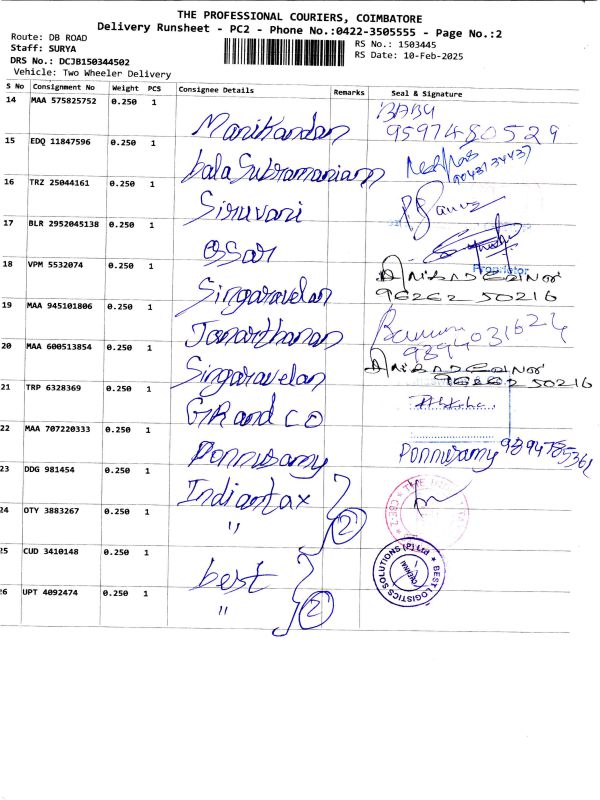 THE PROFESSIONAL COURIERS, COIMBATORE
Delivery Runsheet - PC2 - Phone No.:0422-3505555 - Page No.:2
Route: DB ROAD
Staff: SURYA
RS No.: 1503445
DRS No.: DCJB150344502
RS Date: 10-Feb-2025
Vehicle: Two Wheeler Delivery
S No Consignment No Weight PCS Consignee Details Remarks Seal & Signature
14 MAA 575825752 0.250 1 Manikandan BABU
9597480529
15 EDQ 11847596 0.250 1 bala Subramaniam
9043134437
16 TRZ 25044161 0.250 1 Siruvani
17 BLR 2952045138 0.250 1 OSar
Proprietor
18 VPM 5532074 0.250 1 Singaravelan
96262 50216
19 MAA 945101806 0.250 1 Janarthanan
9894031624
20 MAA 600513854 0.250 1 Singaravelan
96262 50216
21 TRP 6328369 0.250 1 GR and CO
22 MAA 707220333 0.250 1 Ponnusamy Ponnusamy 9894785362
23 DDG 981454 0.250 1 Indiantax
24 OTY 3883267 0.250 1 " 2
25 CUD 3410148 0.250 1 best
BEST LOGISTICS SOLUTIONS (P) Ltd
CHENNAI
26 UPT 4092474 0.250 1 " 2